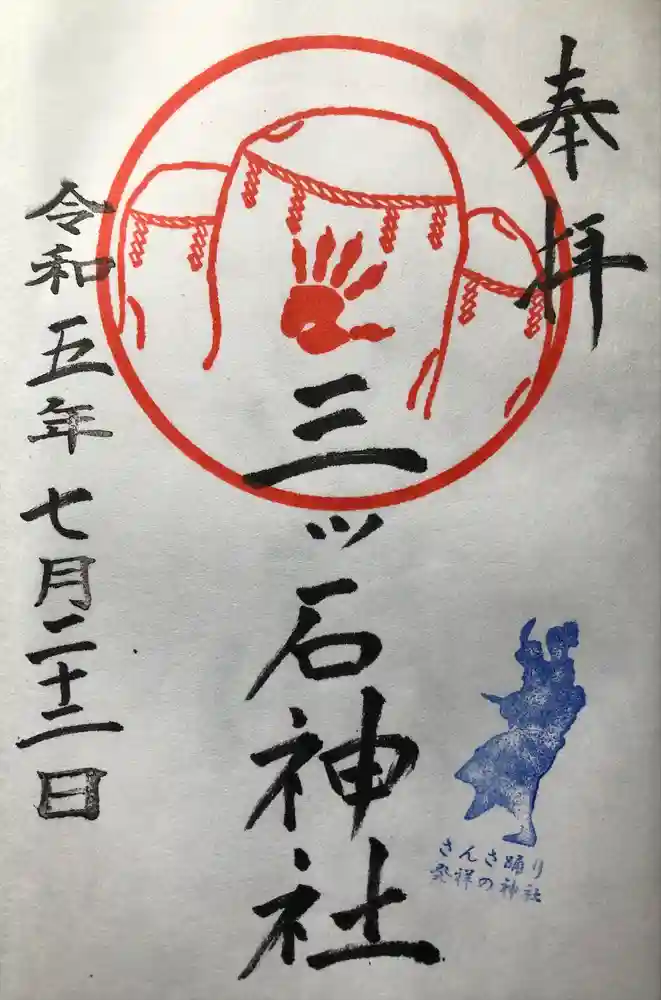 奉拝
三ッ石神社
令和五年七月二十二日
さんさ踊り
発祥の神社